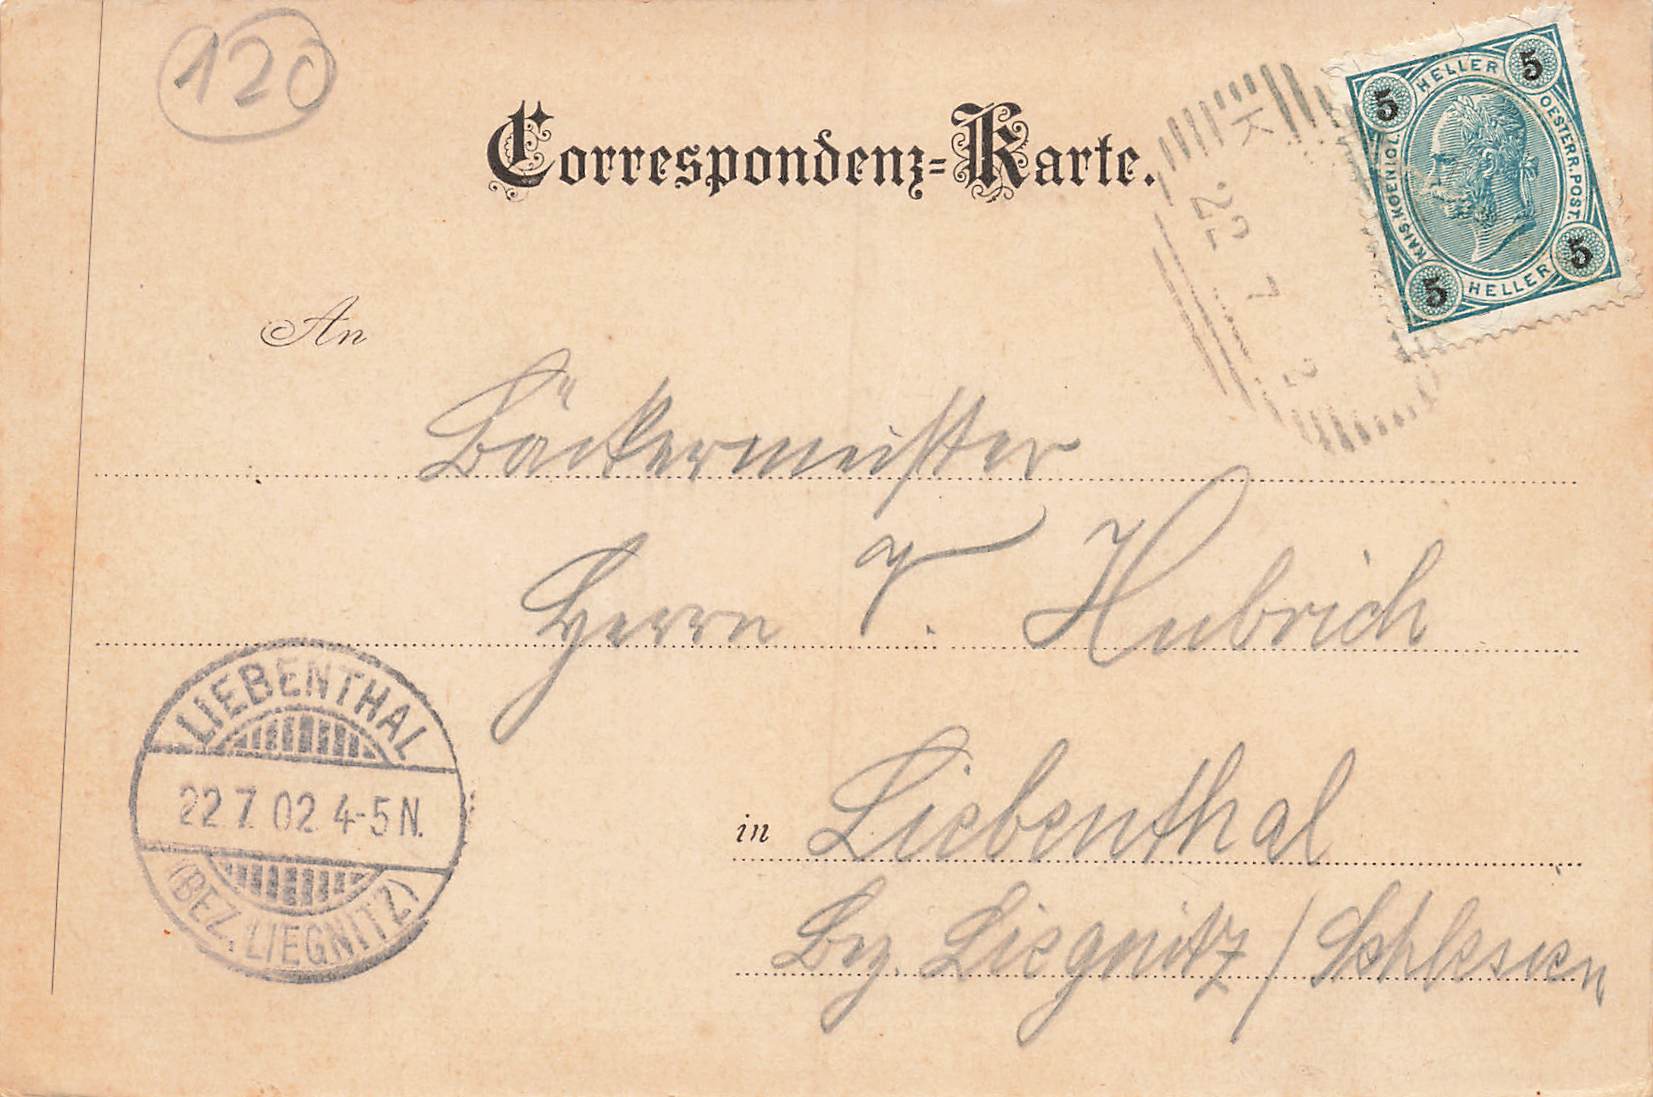 120
Correspondenz-Karte.
5 HELLER 5
KAIS. KOENIGL.
OESTERR. POST.
5 HELLER 5
K
22 7 2
An
Bäckermeister
Herrn A. Hubrich
in Liebenthal
Bez. Liegnitz / Schlesien
LIEBENTHAL
22 7. 02 4-5 N.
(BEZ. LIEGNITZ)